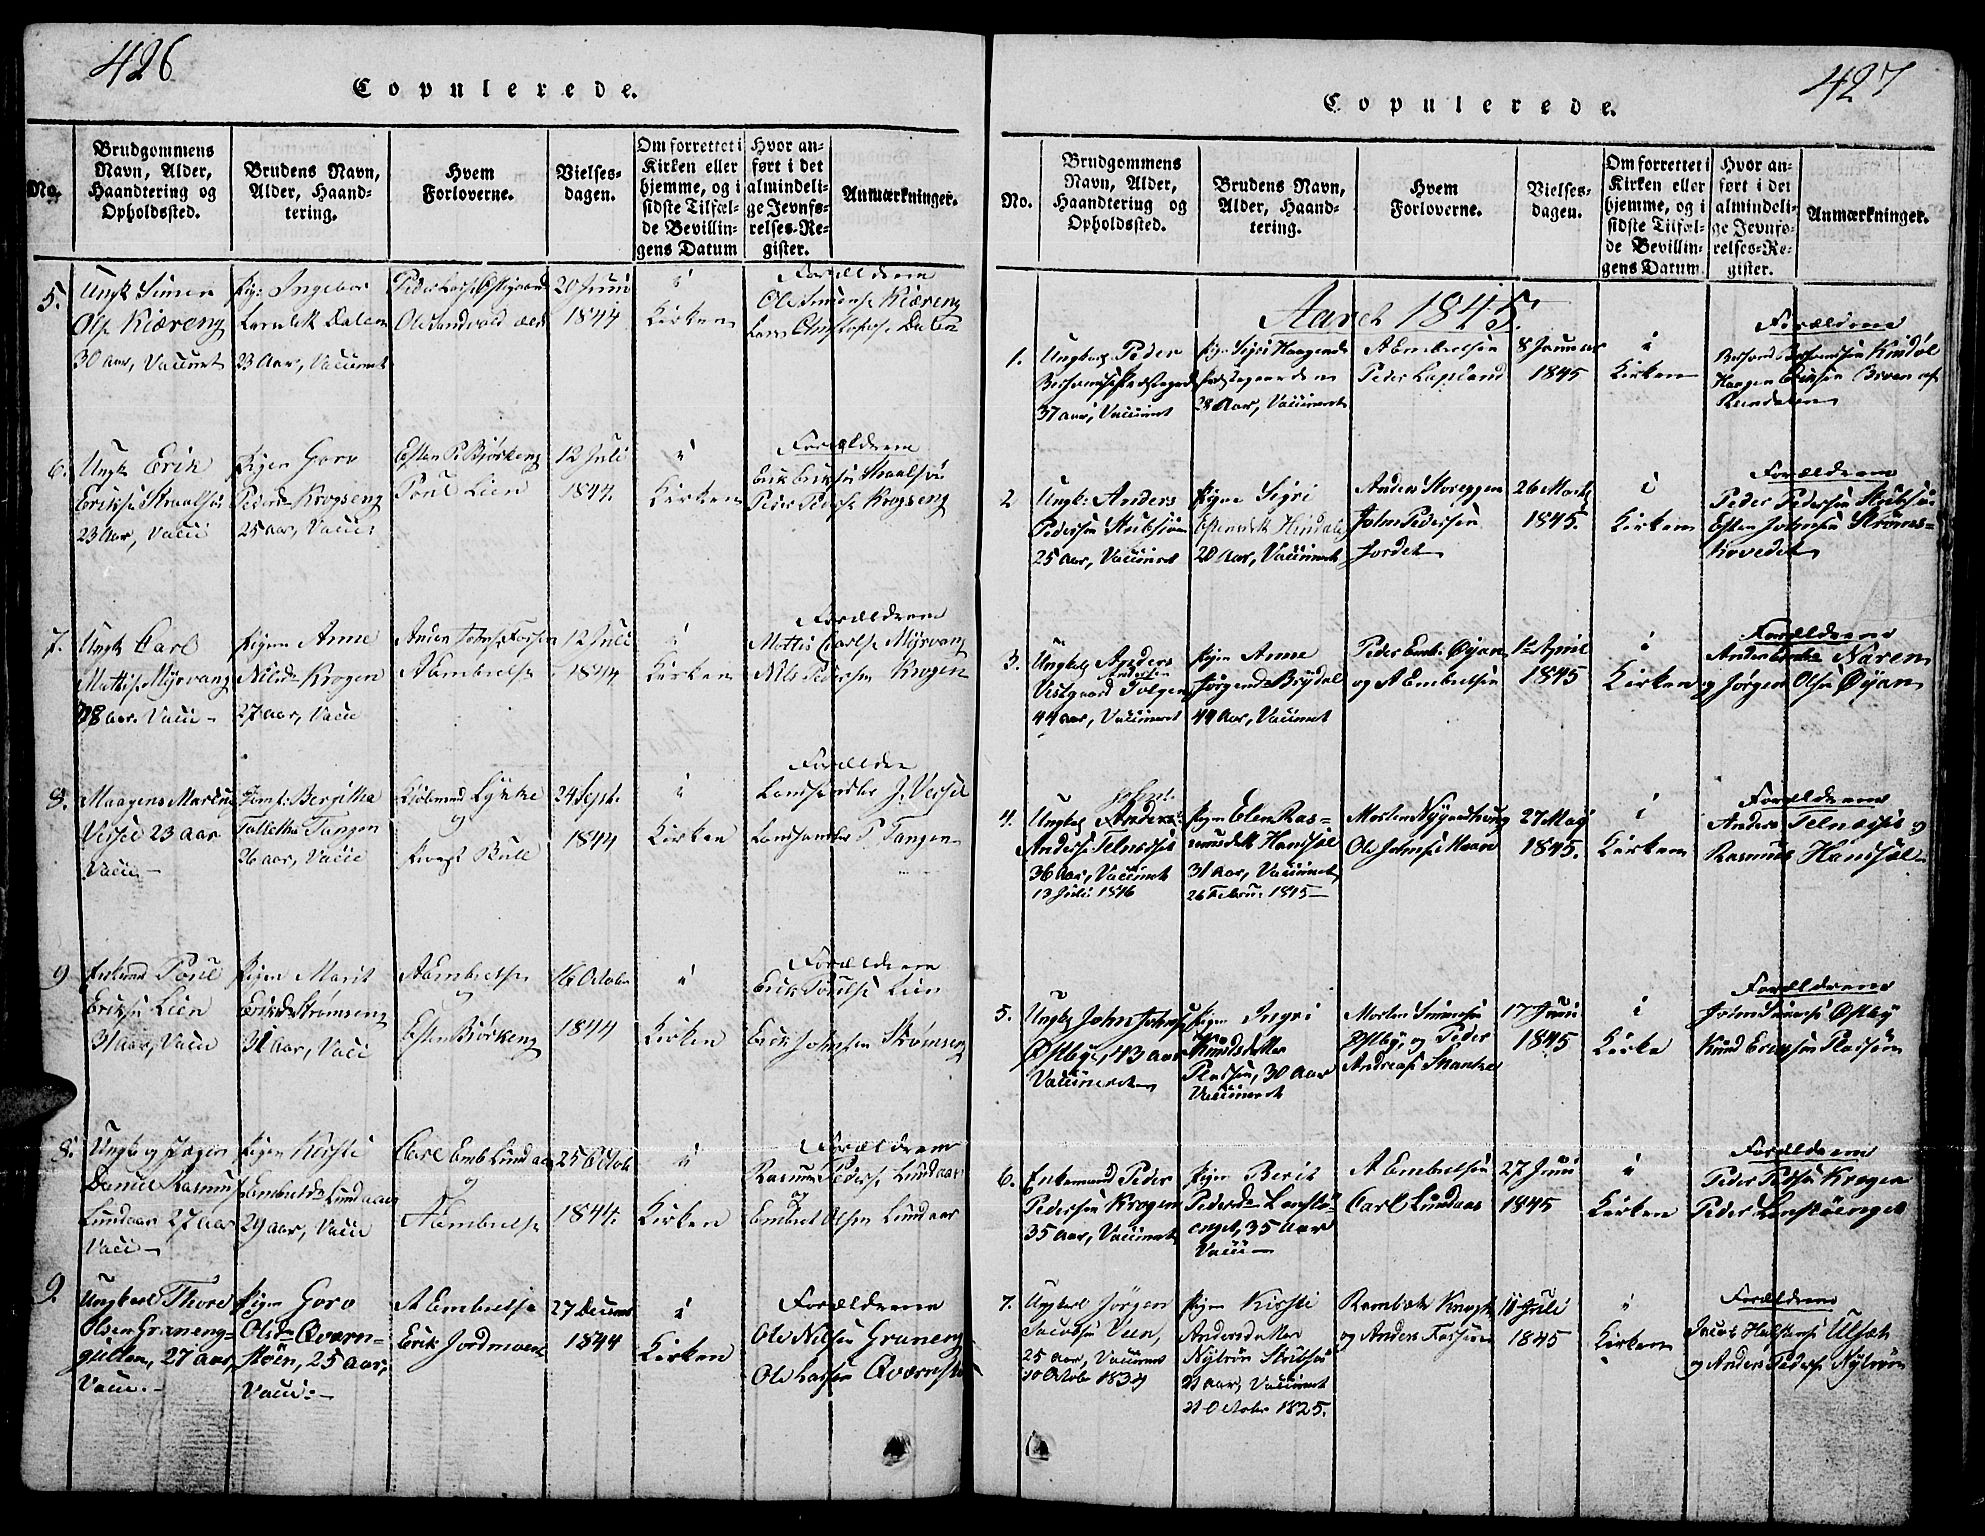 426
Copulerede.
No.
Brudgommens
Navn, Alder,
Haandtering og
Opholdssted.
Brudens Navn,
Alder, Haand-
tering.
Hvem
Forloverne.
Vielses-
dagen.
Om forrettet i
Kirken eller
hjemme, og i
sidste Tilfæl-
de Bevillin-
gens Datum
Hvor an-
ført i det
almindeli-
ge Jevnfø-
relses-Re-
gister.
Anmærkninger.
5.
Ungk Simen
Ols Kiæreng
30 aar, Vaccinet
Pig: Ingebor
Larsdtk Dalen
23 Aar, Vaccinet
Ole Sandvold
20 Juni
1844
i
Kirken
Forældrene
Ole Simens Kiæreng
Dalen
6.
Ungk Erik
Eriksen Straalsøe
23 Aar, Vacci
Pigen Goro
Pedersd Krogseng
25 aar, Vacci:
Esten P. Bjørkeng
Poul Lien
12 Juli
1844.
i
Kirken
Forældrene
Erik Eriksen Straalsøe
Peder Peders Krogseng
7.
Ungk Carl
Mathis Myrvang
28 aar. Vacci -
Pigen Anne
Nilsd Krogen
27 aar, Vacci
A Embretsen
12 Juli
1844
i
Kirken
Forældrene
Mattis Carlse Myrvang
Nils Pedersen Krogen
8.
Maagens Marcus
Vessel 23 aar
Vacci. -
Jomf: Bergitha
Tolletha Tangen
26 aar, Vacci
Lykke
og
Bull
24 Sept.
1844
i
Kirken
Forældre
Landhandler J. Vessel
Landhandler P. Tangen
9
Enkemd Poul
Eriksen Lien
31 aar, Vacci
Pigen Marit
Eriksd Strømseng
31 aar, Vacci
A Embretsen
og
Esten Bjørkeng
16 Octobr
1844
i
Kirken
Forældrene
Erik Poulse Lien
Erik Johnsen Strømseng
8.
Daniel Rasmus
Lundaas 27 aar
Vacci -
Pigen Kirsti
Embretsd Lundaas
29 aar, Vacci
Carl Emb Lundaas
og
A Embretse
25 Octob
1844.
i
Kirken
Forældrene
Rasmus Peders Lundaas
og
Embret Olsen Lundaas
9.
Ungkarl Thore
Olsen Graneng-
gutten, 27 aar,
Vacci. -
Pigen Goro
Olsd Qværn-
støen, 25 aar,
Vacci: -
A Embretse
Erik Jordmoen
27 Decemb
1844
i
Kirken
Forældrene
Ole Nilsen Graneng
Ole Larsen Qværnstø
427
Copulerede.
No.
Brudgommens
Navn, Alder,
Haandtering og
Opholdssted.
Brudens Navn,
Alder, Haand-
tering.
Hvem
Forloverne.
Vielses-
dagen.
Om forrettet i
Kirken eller
hjemme, og i
sidste Tilfæl-
de Bevillin-
gens Datum.
Hvor an-
ført i det
almindeli-
ge Jevnfø-
relses-Re-
gister.
Anmærkninger.
Aaret 1845.
1.
Ungkarl Peder
37 aar, Vaccinet
Pigen Sigri Haagensd
Præstegaarden
28 Aar, Vaccineret
A Embretsen
Peder Lapland
8 Januar
1845
i
Kirken
Forældrene
Haagen Eriksen Broen af
Rendalen
2
Ungk: Anders
Pedersen
25 aar, Vaccineret
Pigen Sigri
Estensdtk
20 Aar, Vaccineret
Anders Storeggen
John Pedersen
Jordet
26 Marts
1845.
i
Kirken
Forældrene
Peder Pedersen
Esten Johnsen Strøms-
hovedet
3.
Ungkarl Anders
Andersen
Vestgaard Tolgen
44 aar, Vaccineret
Pigen Anne
Jørgensd Brydal
44 Aar, Vaccinet
Peder Emb: Øyan
og A Embretsen
12 April
1845
i
Kirken
Forældrene
Anders Naren
og Jørgen Olsen Øyan
4.
John
Ungkarl Anders
Anders: Telnæsset
36 Aar, Vaccinet
13 Juli 1816
Pigen Elen Ras-
musdtk Handsøl
31 aar, Vaccineret
26 Februar 1815 -
Morten Nygaardhaug
Ole Johnse Moen
27 Maj
1845.
i
Kirken
Forældrene
Anders Telnæsset og
Rasmus Handsøl
5.
Ungk John Johns
Østby, 43 aar
Vaccineret
Pigen Ingri
Knudsdatter
Plassen, 30 Aar
Vaccineret
Morten Simensen
Østby, og Peder
Andreas Skanke
17 Juni
1845
i
Kirke
Forældrene
John Simens Østby
Knud Ericksen Plassen
6.
Enkemand Peder
Pedersen Krogen
35 aar, Vaccineret
Pigen Berit
Pedersd Langstø-
enget, 35 Aar
Vacci -
A Embretsen
Carl Lundaas
27 Juni
1845
i
Kirken
Forældrene
Peder Peders Krogen
Peder Langstøenget
7.
Ungkarl Jørgen
Jacobsen Veen,
25 aar, Vaccineret
10 Octob 1834
Pigen Kirsti
Andersdatter
Nytrøn
21 aar, Vaccineret
21 October 1825.
Rembet Krogh
og Anders Fossum
11 Juli
1845
i
Kirken
Forældrene
Jacob Ulset
og Anders Peders Nytrøn